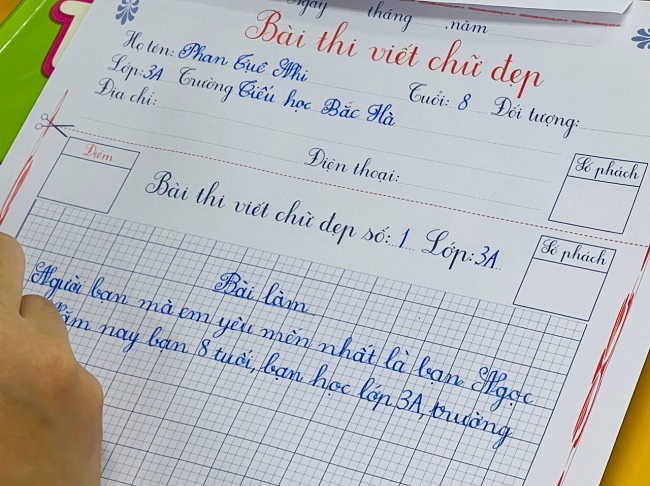 Ngày tháng ,năm
Bài thi viết chữ đẹp
Họ tên: Phan Tuệ Nhi Tuổi: 8 Đối tượng:
Lớp: 3A Trường Tiểu học Bắc Hà
Địa chỉ:
Điện thoại:
Điểm
Số phách
Bài thi viết chữ đẹp số: 1 Lớp: 3A
Số phách
Bài làm
Người bạn mà em yêu mến nhất là bạn Ngọc
Năm nay bạn 8 tuổi, bạn học lớp 3A, trường